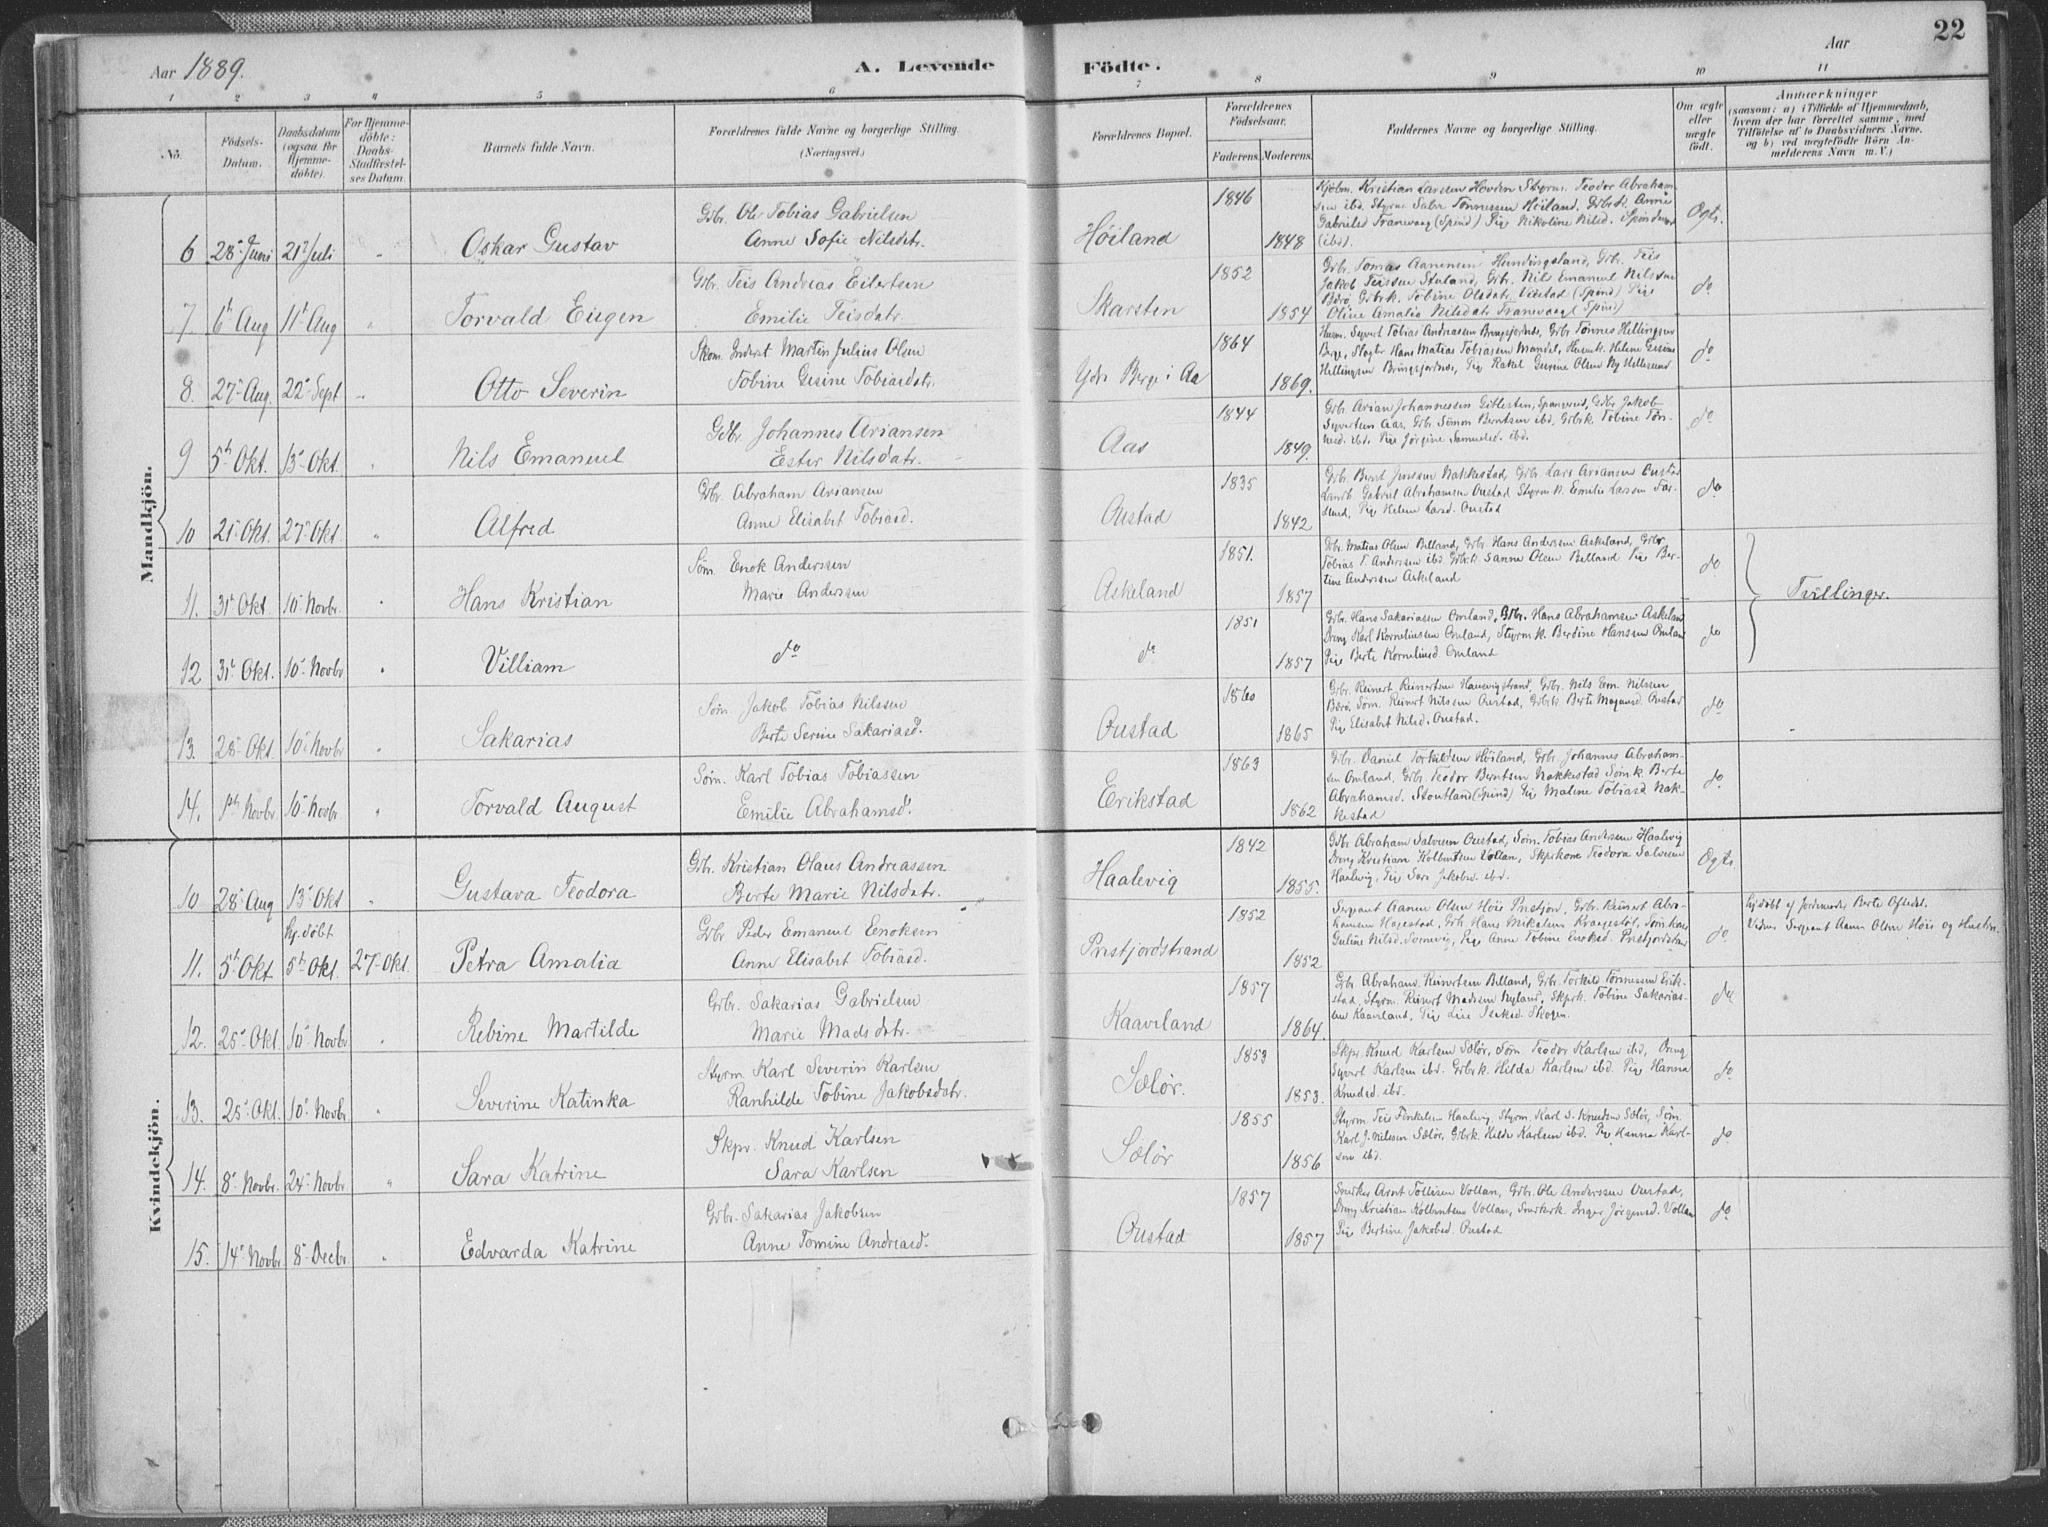 22
Aar 1889.
A. Levende Födte.
Aar
1 2 3 4 5 6 7 8 9 10 11
No.
Födsels-Datum.
Daabsdatum (ogsaa for Hjemme-döbte).
For Hjemme-döbte: Daabs-Stadfæstel-ses Datum.
Barnets fulde Navn.
Forældrenes fulde Navne og borgerlige Stilling.
(Næringsvei.)
Forældrenes Bopæl.
Forældrenes Födselsaar.
Faderens. Moderens.
Faddernes Navne og borgerlige Stilling.
Om ægte eller uægte födt.
Anmærkninger
(saasom: a) i Tilfælde af Hjemmedaab, hvem der har forrettet samme, med Tilföielse af to Daabsvidners Navne, og b) ved uægtefödte Börn Anmelderens Navn m. V.)
Mandkjön.
6 28 Juni 21 Juli " Oskar Gustav
Gbr. Ole Tobias Gabrielsen
Anne Sofie Nilsdatr.
Høiland 1846 1848
Kjøbm. Kristian Larsen Hovden Styrm. Teodor Abraham-
sen ibd. Styrm. Salve Tønnessen Høiland. Gbrk. Anne
Gabrielsd Tranevaag (Spind) Pige Nikoline Nilsd.
(ibd).
Ægte.
7. 6 Aug 11 Aug " Torvald Eugen
Gbr. Teis Andreas Eilertsen
Emilie Teisdatr.
Skarsten 1852 1854
Gbr. Tomas Aanensen Hundingsland, Gbr. Teis
Jakob Teissen Stuland, Gbr. Nils Emanuel Nilssen
Børø Gbrk. Tobine Olsdatr. (Spind) Pige
Oline Amalia Nilsdatr Tranevaag (Spind)
do
8. 27 Aug. 22 Sept " Otto Severin
Martin Julius Olsen
Tobine Gesine Tobiasdtr.
Ydr Berge i Aa 1864 1869.
Husm. Syvert Tobias Andreassen Bringsfjordnes, Gbr Tønnes Hellingsen
Berge, Slagter Hans Matias Tobiassen Mandal, Husmk. Helene Gesine
Hellingsen Bringsfjordnes, Pige Rakel Gurine Olsen Ny Hellesund
do
9 5 Okt. 13 Okt. " Nils Emanuel
Gbr. Johannes Ariansen
Ester Nilsdatr.
Aas 1844 1849.
Gbr. Arian Johannessen Gitlesten, Spangereid, Gbr Jakob
Syvertsen Aas, Gbr Simon Berntsen ibd Gbrk Tobine Tøn-
nesd. ibd. Pige Jørgine Samuelsd. ibd.
do
10 21 Okt. 27 Okt. " Alfred
Gbr. Abraham Ariansen
Anne Elisabet Tobiasd.
Oustad 1835 1842
Gbr. Bernt Jenssen Nakkestad, Gbr Lars Ariansen Oustad
Gabriel Abrahamsen Oustad Styrmk. Emilie Larssen Far-
sund, Pige Helene Larsd. Oustad
do
11. 31 Okt. 10 Novbr. " Hans Kristian
Søm. Enok Anderssen
Marie Anderssen
Askeland 1851. 1857
Gbr. Matias Olsen Billand, Gbr Hans Anderssen Askeland, Gbr
Tobias T. Anderssen ibd Gbrk Sanne Olsen Belland Pige Ber-
tine Anderssen Askeland
do
Tvillinger.
12 31 Okt. 10 Novbr " Villiam
do
do 1851 1857
Gbr. Hans Sakariassen Omland, Gbr. Hans Abrahamsen Askeland
Dreng Karl Korneliussen Omland, Styrmk. Berdine Hanssen Omland
Pige Berte Korneliusd. Omland
do
13. 28 Okt. 10 Novbr " Sakarias
Søm. Jakob Tobias Nilssen
Berte Serine Sakariasd.
Oustad 1860 1865
Gbr. Reinert Reinertsen Haaevigstrand, Gbr. Nils Em. Nilssen
Børø, Søm. Reinert Nilssen Oustad, Gbrk Berte Oustad
Pige Elisabet Nilsd. Oustad.
do
14. 1 Novbr. 10 Novbr. " Torvald August
Søm. Karl Tobias Tobiassen
Emilie Abrahamsd.
Erikstad 1863 1862
Gbr. Daniel Torkildsen Høiland, Gbr Johannes Abraham-
sen Omland, Gbr Teodor Berntsen Nakkestad Sømk. Berte
Abrahamsd. Stoutland (Spind) Pige Malene Tobiasd Nak-
kestad
do
Kvindekjön.
10 28 Aug 13 Okt " Gustava Teodora
Gbr. Kristian Olaus Andreassen
Berte Marie Nilsdatr.
Haalevig 1842 1855.
Gbr Abraham Salvesen Oustad, Søm. Tobias Anderssen Haalevig
Dreng Kristian Kolbentsen Vollan, Skprkone Teodora Salvesen
Haalevig, Pige Sara Jakobsd. ibd.
Ægte.
11. 5 Okt Hj. døbt 5 Okt. 27 Okt. Petra Amalia
Gbr Peder Emanuel Enoksen
Anne Elisabet Tobiasd.
Prestfjordstrand 1852 1852
Sergeant Aanen Olsen Høie Gbr. Reinert Abra-
hamsen Hagestad, Gbr. Hans Mikalsen Sømkone
Guline Nilsd. Pige Anne Tobine Enoksd. Prestfjordstrand
do
Hj.døbt af Jordemoder Berte Oftedal.
Vidner Sergeant Aanen Olsen Høie og Hustru.
12. 25 Okt. 10 Novbr " Rebine Martilde
Gbr. Sakarias Gabrielsen
Marie Madsdatr.
Kaaviland 1857 1864.
Gbr Abraham Reinertsen Billand, Gbr. Torkild Tønnessen Erik-
stad, Styrm. Reinert Madssen Nyland, Skprk. Tobine Sakarias-
sen Kaaviland, Pige Lise Isaksd. Skogen.
do
13. 25 Okt. 10 Novbr. " Severine Katinka
Styrm. Karl Severin Karlsen
Ranhilde Tobine Jakobsdatr.
Sælør. 1853 1853.
Skpr. Knud Karlsen Sælør, Søm Teodor Karlsen ibd, Dreng
Syvert Karlsen ibd. Gbrk. Hilda Karlsen ibd. Pige Hanna
Knudsd. ibd.
do
14. 8 Novbr. 24 Novbr. " Sara Katrine
Skpr. Knud Karlsen
Sara Karlsen
Sælør 1855 1856
Styrm. Teis Finkelsen Haalevig Styrm. Karl S. Knudsen Sælør, Søm.
Karl J. Nilssen Sælør, Gbrk. Hilde Karlsen ibd. Pige Hanna Karl-
sen ibd.
do
15. 14 Novbr. 8 Decbr. " Edvarda Katrine
Gbr. Sakarias Jakobsen
Anne Tomine Andreasd.
Oustad 1857 1857
Snedker Arnt Tollisen Vollan, Gbr. Ole Anderssen Oustad,
Dreng Kristian Kolbentsen Vollan, Snedkerk. Inger Jørgensd. Vollan
Pige Bertine Jakobsd. Oustad
do